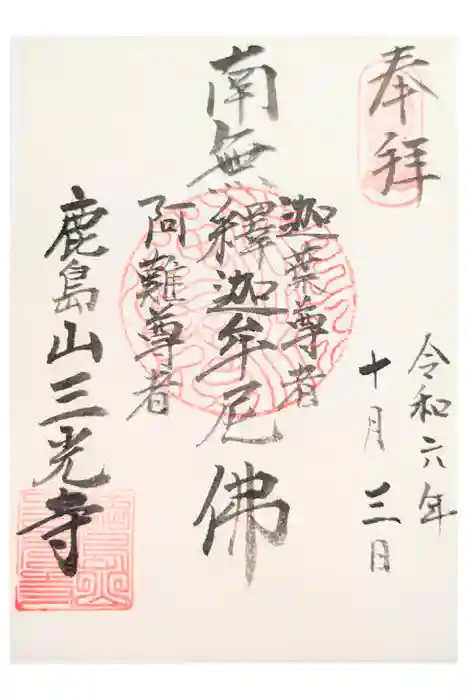 奉拝
令和六年
十月三日
迦葉尊者
南無釋迦牟尼佛
阿難尊者
鹿島山三光寺